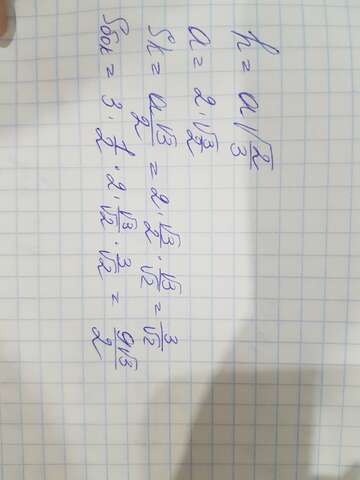 h = a√2/3
a = 2·√3/√2
Sk = a√3/2 = 2·√3/2·√3/√2 = 3/√2
Sбок = 3·1/2·2·√3/√2·3/√2 = 9√3/2